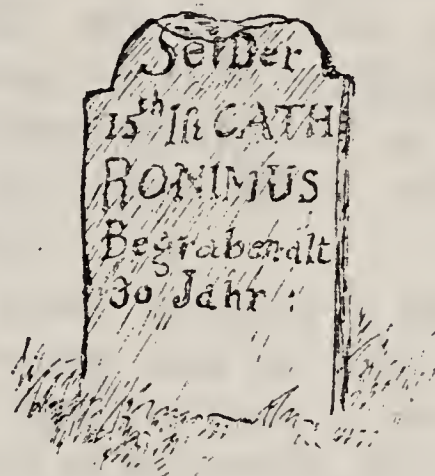 SeiDer
15th Ist CATH
RONIMUS
Begraben alt
30 Jahr :